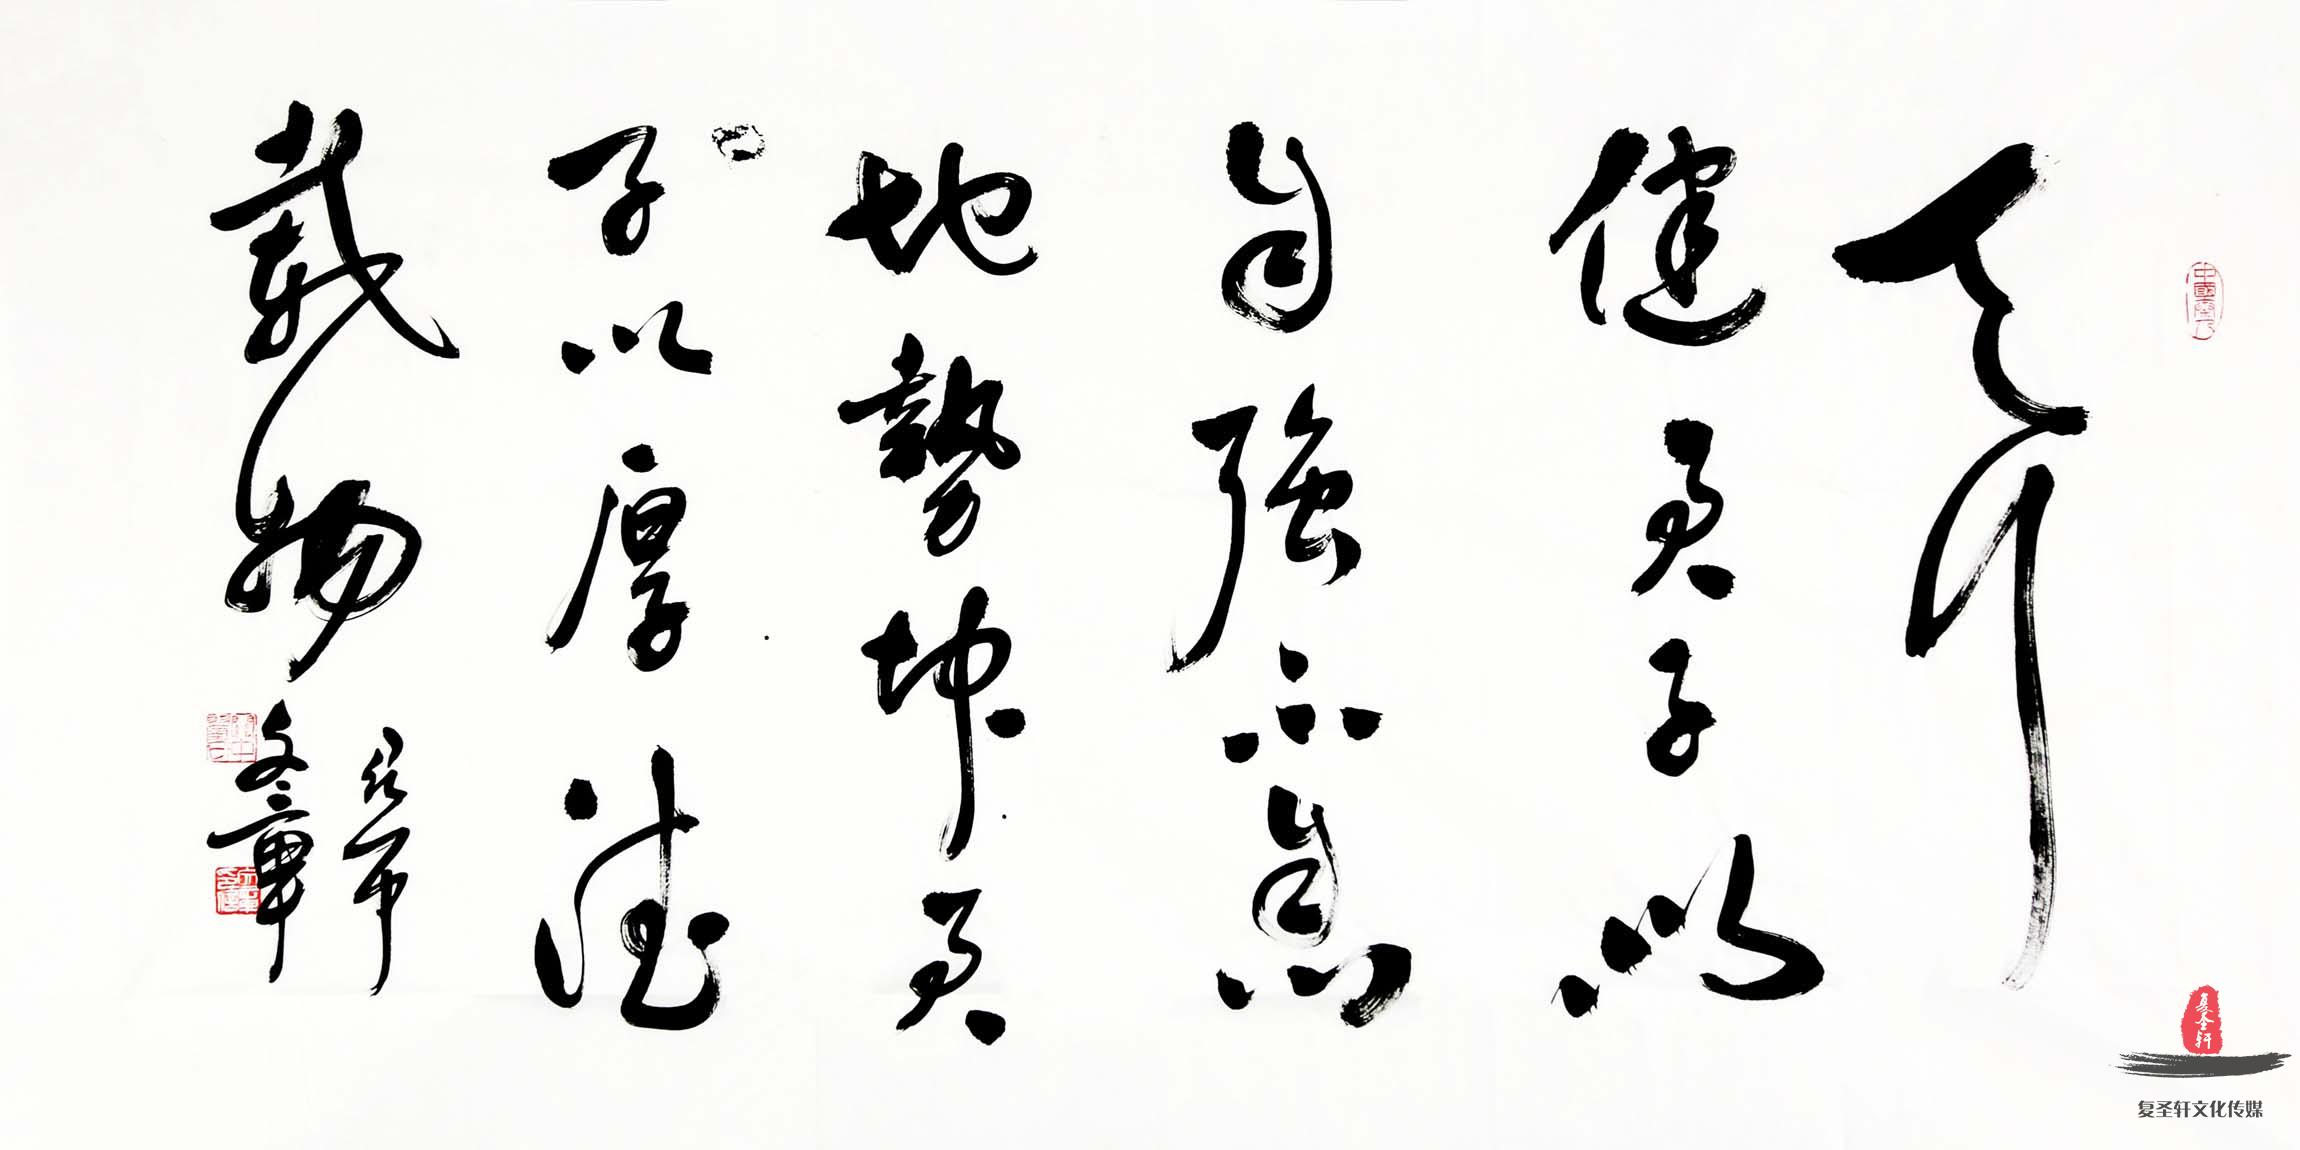 天行
健君子以
自強不息
地勢坤君
子以厚德
載物
复圣轩
复圣轩文化传媒